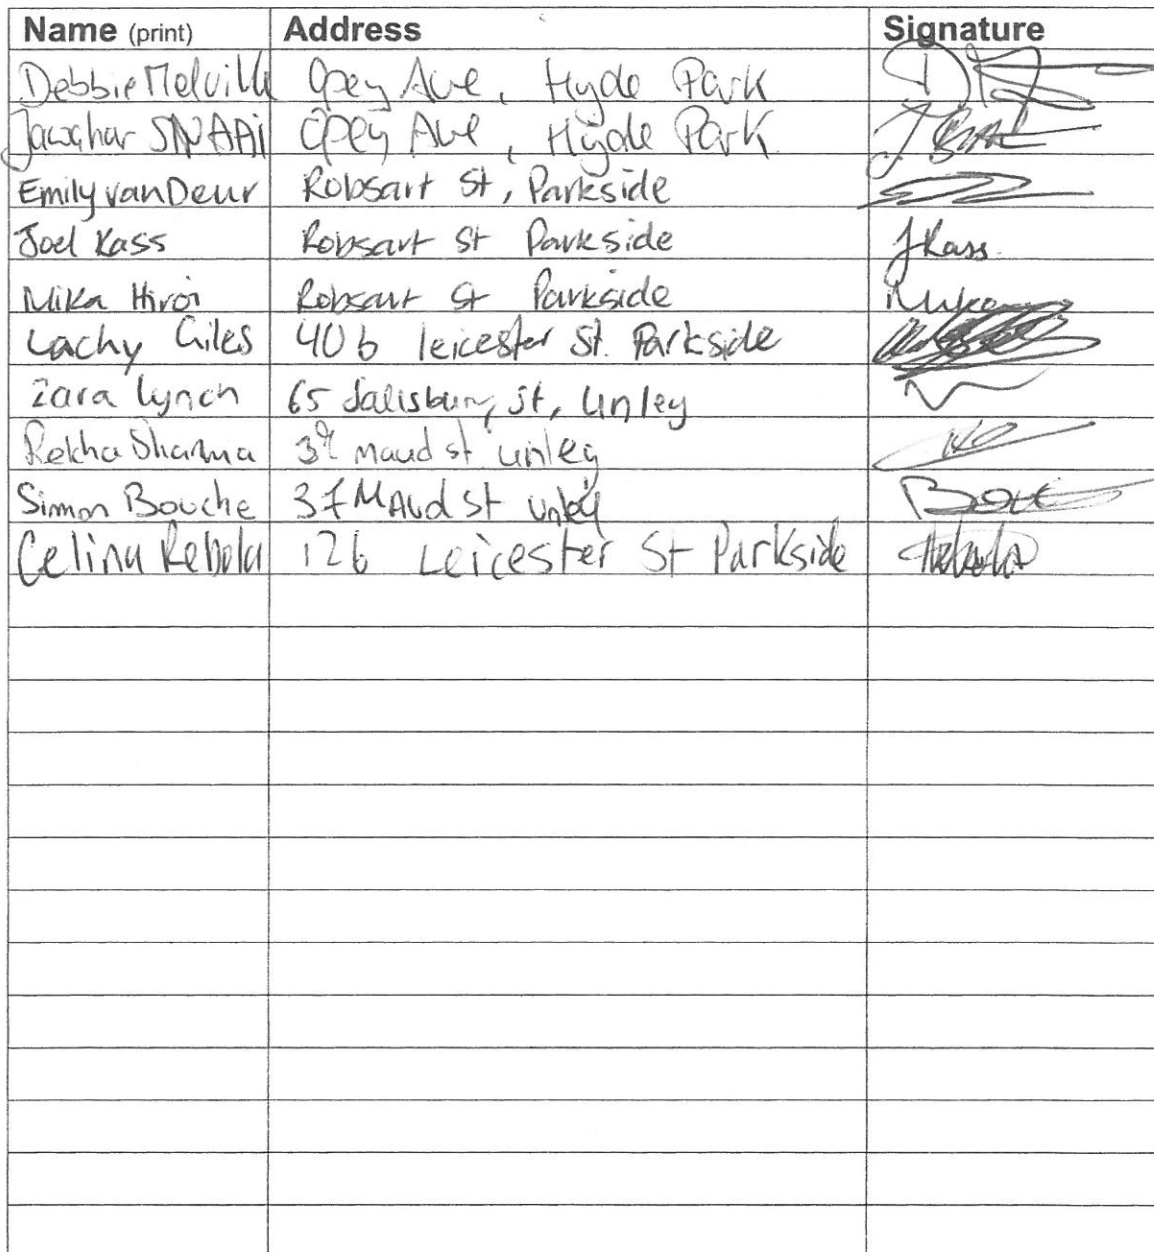 Name (print) Address Signature
Debbie Melville Opey Ave, Hyde Park
Jawahar Opey Ave, Hyde Park
Emily van Deur Robsart St, Parkside
Joel Kass Robsart St Parkside J Kass.
Mika Hiroi Robsart St Parkside Mika
Lachy Giles 40b leicester St. Parkside
Zara Lynch 65 Salisbury St, Unley
Rekha Sharma maud st unley
Simon Bouche 37 MAud st unley
Celina Rebola 12b Leicester St Parkside